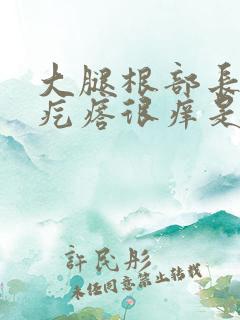 大腿根部長
疙瘩很癢是
許民彤
未经同意禁止转载